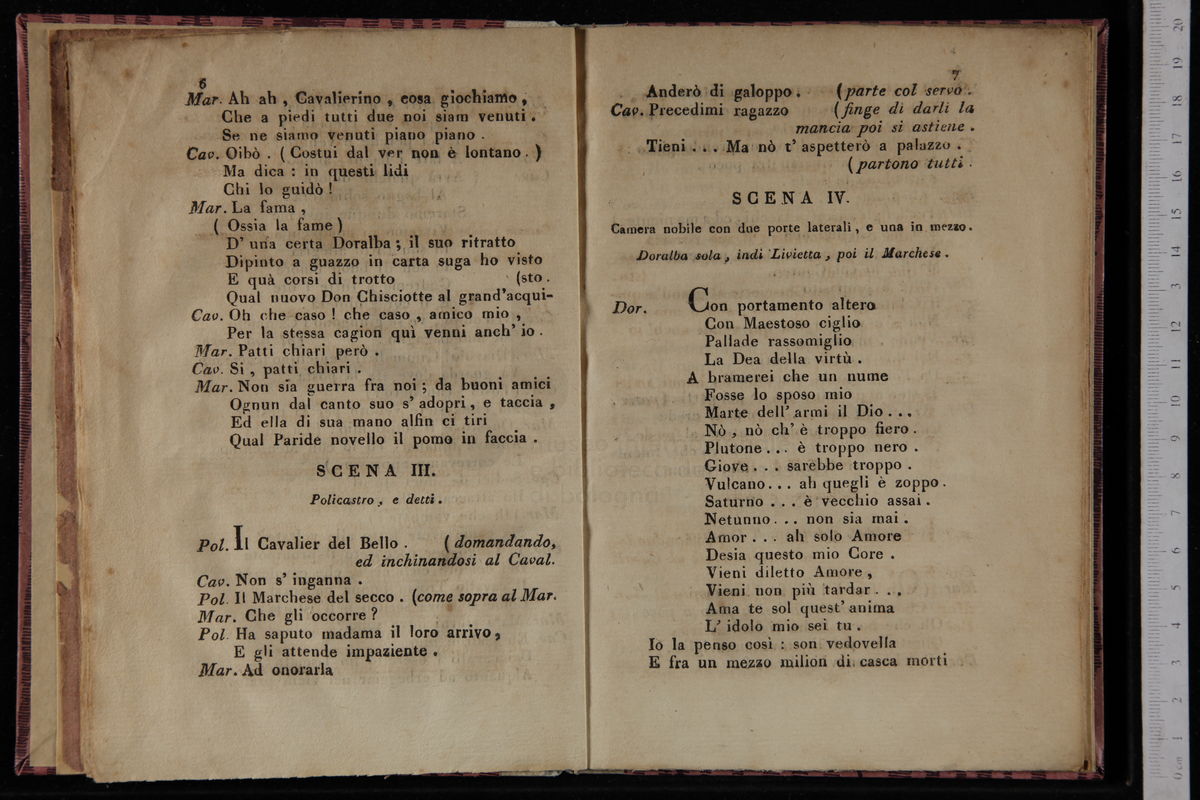 6
Mar. Ah ah, Cavalierino, cosa giochiamo,
Che a piedi tutti due noi siam venuti.
Se ne siamo venuti piano piano.
Cav. Oibò. (Costui dal ver non è lontano.)
Ma dica: in questi lidi
Chi lo guidò!
Mar. La fama,
(Ossia la fame)
D' una certa Doralba; il suo ritratto
Dipinto a guazzo in carta suga ho visto
E quà corsi di trotto (sto.
Qual nuovo Don Chisciotte al grand'acqui-
Cav. Oh che caso! che caso, amico mio,
Per la stessa cagion quì venni anch' io.
Mar. Patti chiari però.
Cav. Si, patti chiari.
Mar. Non sia guerra fra noi; da buoni amici
Ognun dal canto suo s' adopri, e taccia,
Ed ella di sua mano alfin ci tiri
Qual Paride novello il pomo in faccia.
SCENA III.
Policastro, e detti.
Pol. Il Cavalier del Bello. (domandando,
ed inchinandosi al Caval.
Cav. Non s' inganna.
Pol. Il Marchese del secco. (come sopra al Mar.
Mar. Che gli occorre?
Pol. Ha saputo madama il loro arrivo,
E gli attende impaziente.
Mar. Ad onorarla
7
Anderò di galoppo. (parte col servo.
Cav. Precedimi ragazzo (finge di darli la
mancia poi si astiene.
Tieni... Ma nò t' aspetterò a palazzo.
(partono tutti.
SCENA IV.
Camera nobile con due porte laterali, e una in mezzo.
Doralba sola, indi Livietta, poi il Marchese.
Dor. Con portamento altero
Con Maestoso ciglio
Pallade rassomiglio
La Dea della virtù.
A bramerei che un nume
Fosse lo sposo mio
Marte dell' armi il Dio...
Nò, nò ch' è troppo fiero.
Plutone... è troppo nero.
Giove... sarebbe troppo.
Vulcano... ah quegli è zoppo.
Saturno... è vecchio assai.
Netunno... non sia mai.
Amor... ah solo Amore
Desia questo mio Core.
Vieni diletto Amore,
Vieni non più tardar...
Ama te sol quest' anima
L' idolo mio sei tu.
Io la penso così: son vedovella
E fra un mezzo milion di casca morti